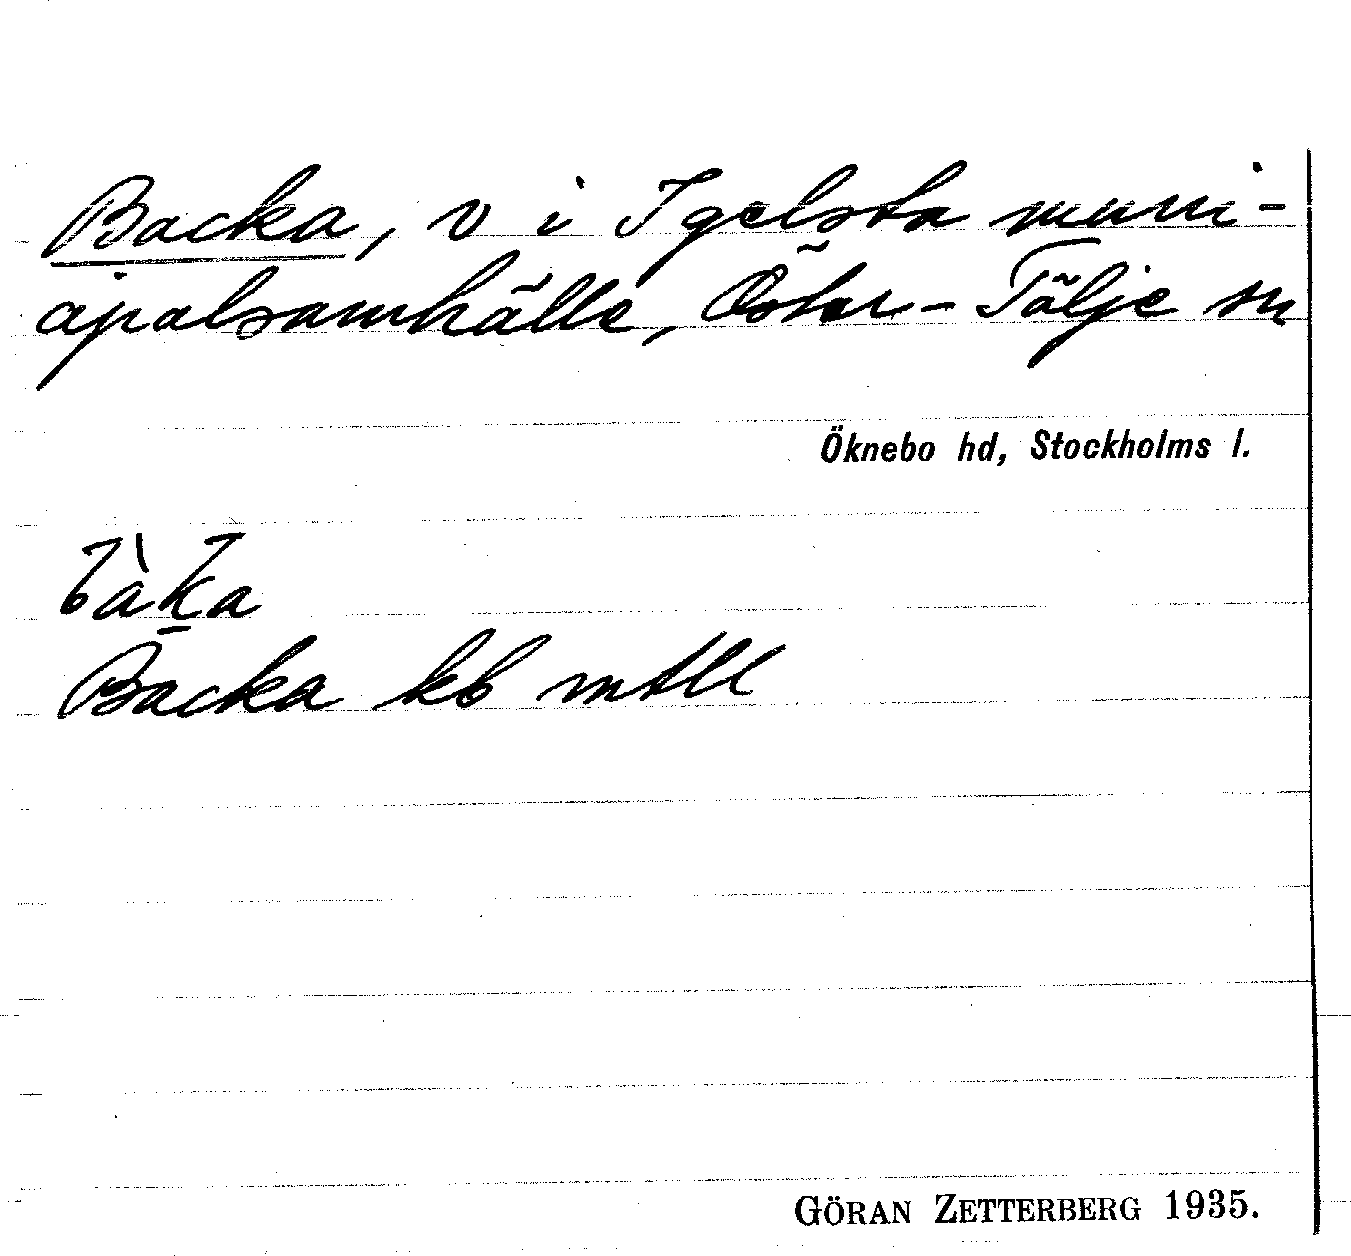 Backa, v i Igelsta muni-
cipalsamhälle, Öster-Tälje sn
Öknebo hd, Stockholms l.
bàk̲a
Backa kb mtll
GÖRAN ZETTERBERG 1935.